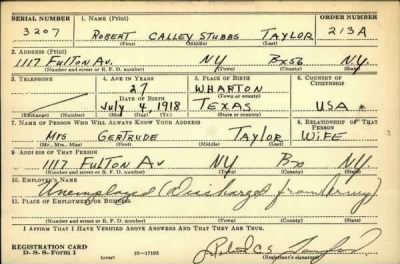 SERIAL NUMBER 1. NAME (Print) ORDER NUMBER
3207 ROBERT CALLEY STUBBS TAYLOR 213A
(First) (Middle) (Last)
2. ADDRESS (Print)
1117 FULTON AV NY BX56 N.Y.
(Number and street or R. F. D. number) (Town) (County) (State)
3. TELEPHONE 4. AGE IN YEARS 5. PLACE OF BIRTH 6. COUNTRY OF CITIZENSHIP
27 WHARTON
DATE OF BIRTH (Town or county)
JULY 4, 1918 TEXAS USA
(Exchange) (Number) (Mo.) (Day) (Yr.) (State or country)
7. NAME OF PERSON WHO WILL ALWAYS KNOW YOUR ADDRESS 8. RELATIONSHIP OF THAT PERSON
MRS GERTRUDE TAYLOR WIFE
(Mr., Mrs., Miss) (First) (Middle) (Last)
9. ADDRESS OF THAT PERSON
1117 FULTON AV NY BX N.Y.
(Number and street or R. F. D. number) (Town) (County) (State)
10. EMPLOYER'S NAME
Unemployed (Discharged from Army)
11. PLACE OF EMPLOYMENT OR BUSINESS
(Number and street or R. F. D. number) (Town) (County) (State)
I AFFIRM THAT I HAVE VERIFIED ABOVE ANSWERS AND THAT THEY ARE TRUE.
REGISTRATION CARD
D. S. S. Form 1 (over) 16—17105 Robert CS Taylor
(Registrant's signature)